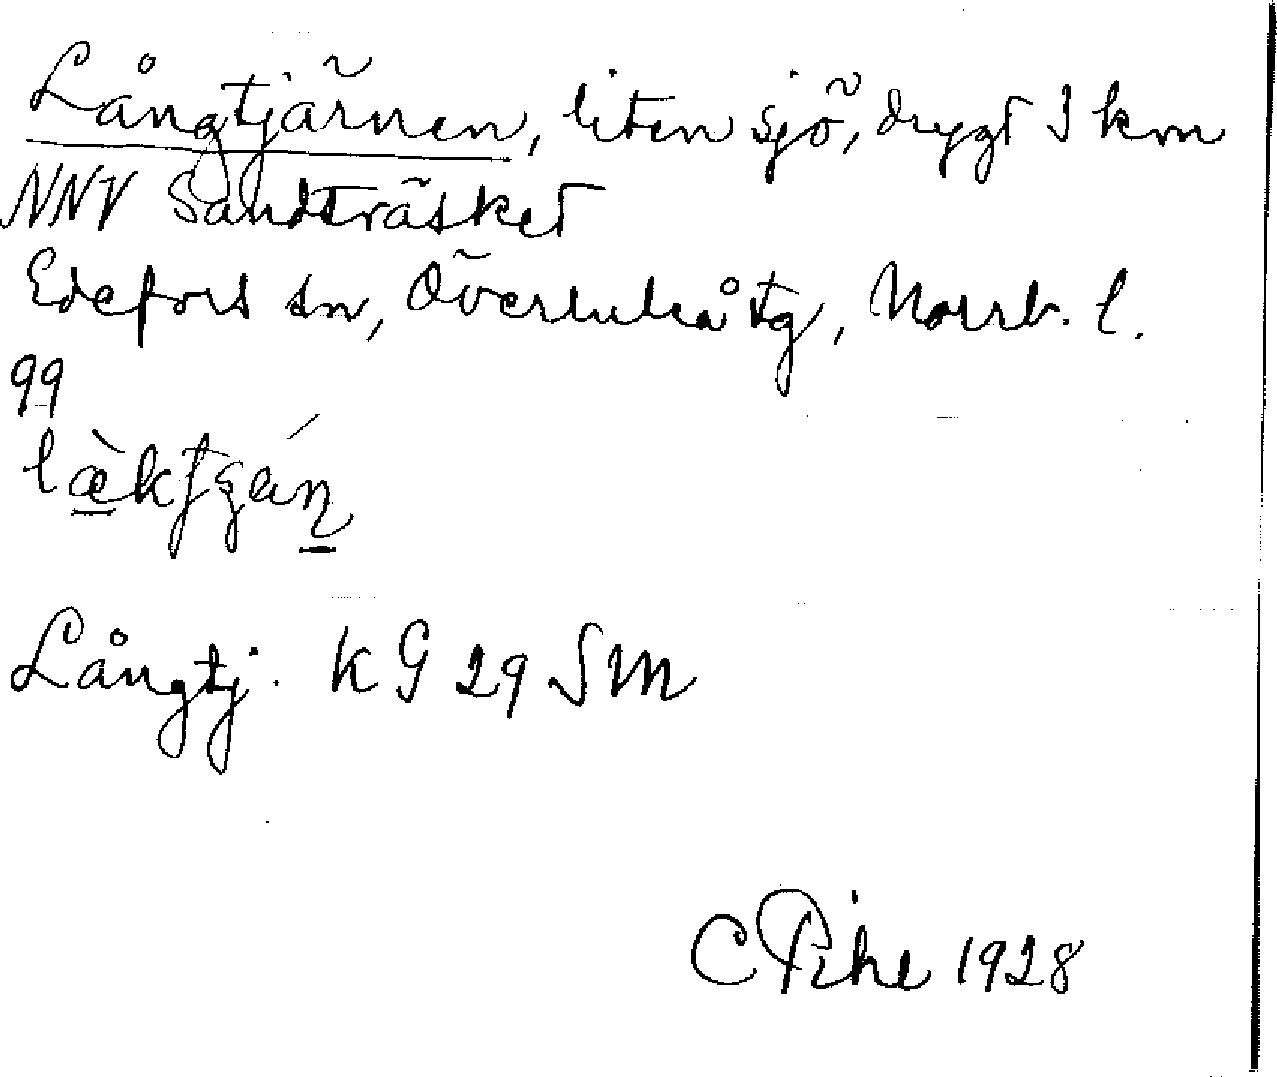 Långtjärnen, liten sjö, drygt 1 km
NNV Sandträsket
Edefors sn, Överluleå tg, Norrb. l.
99
Långtj. KG 29 SM
C Pihl 1928